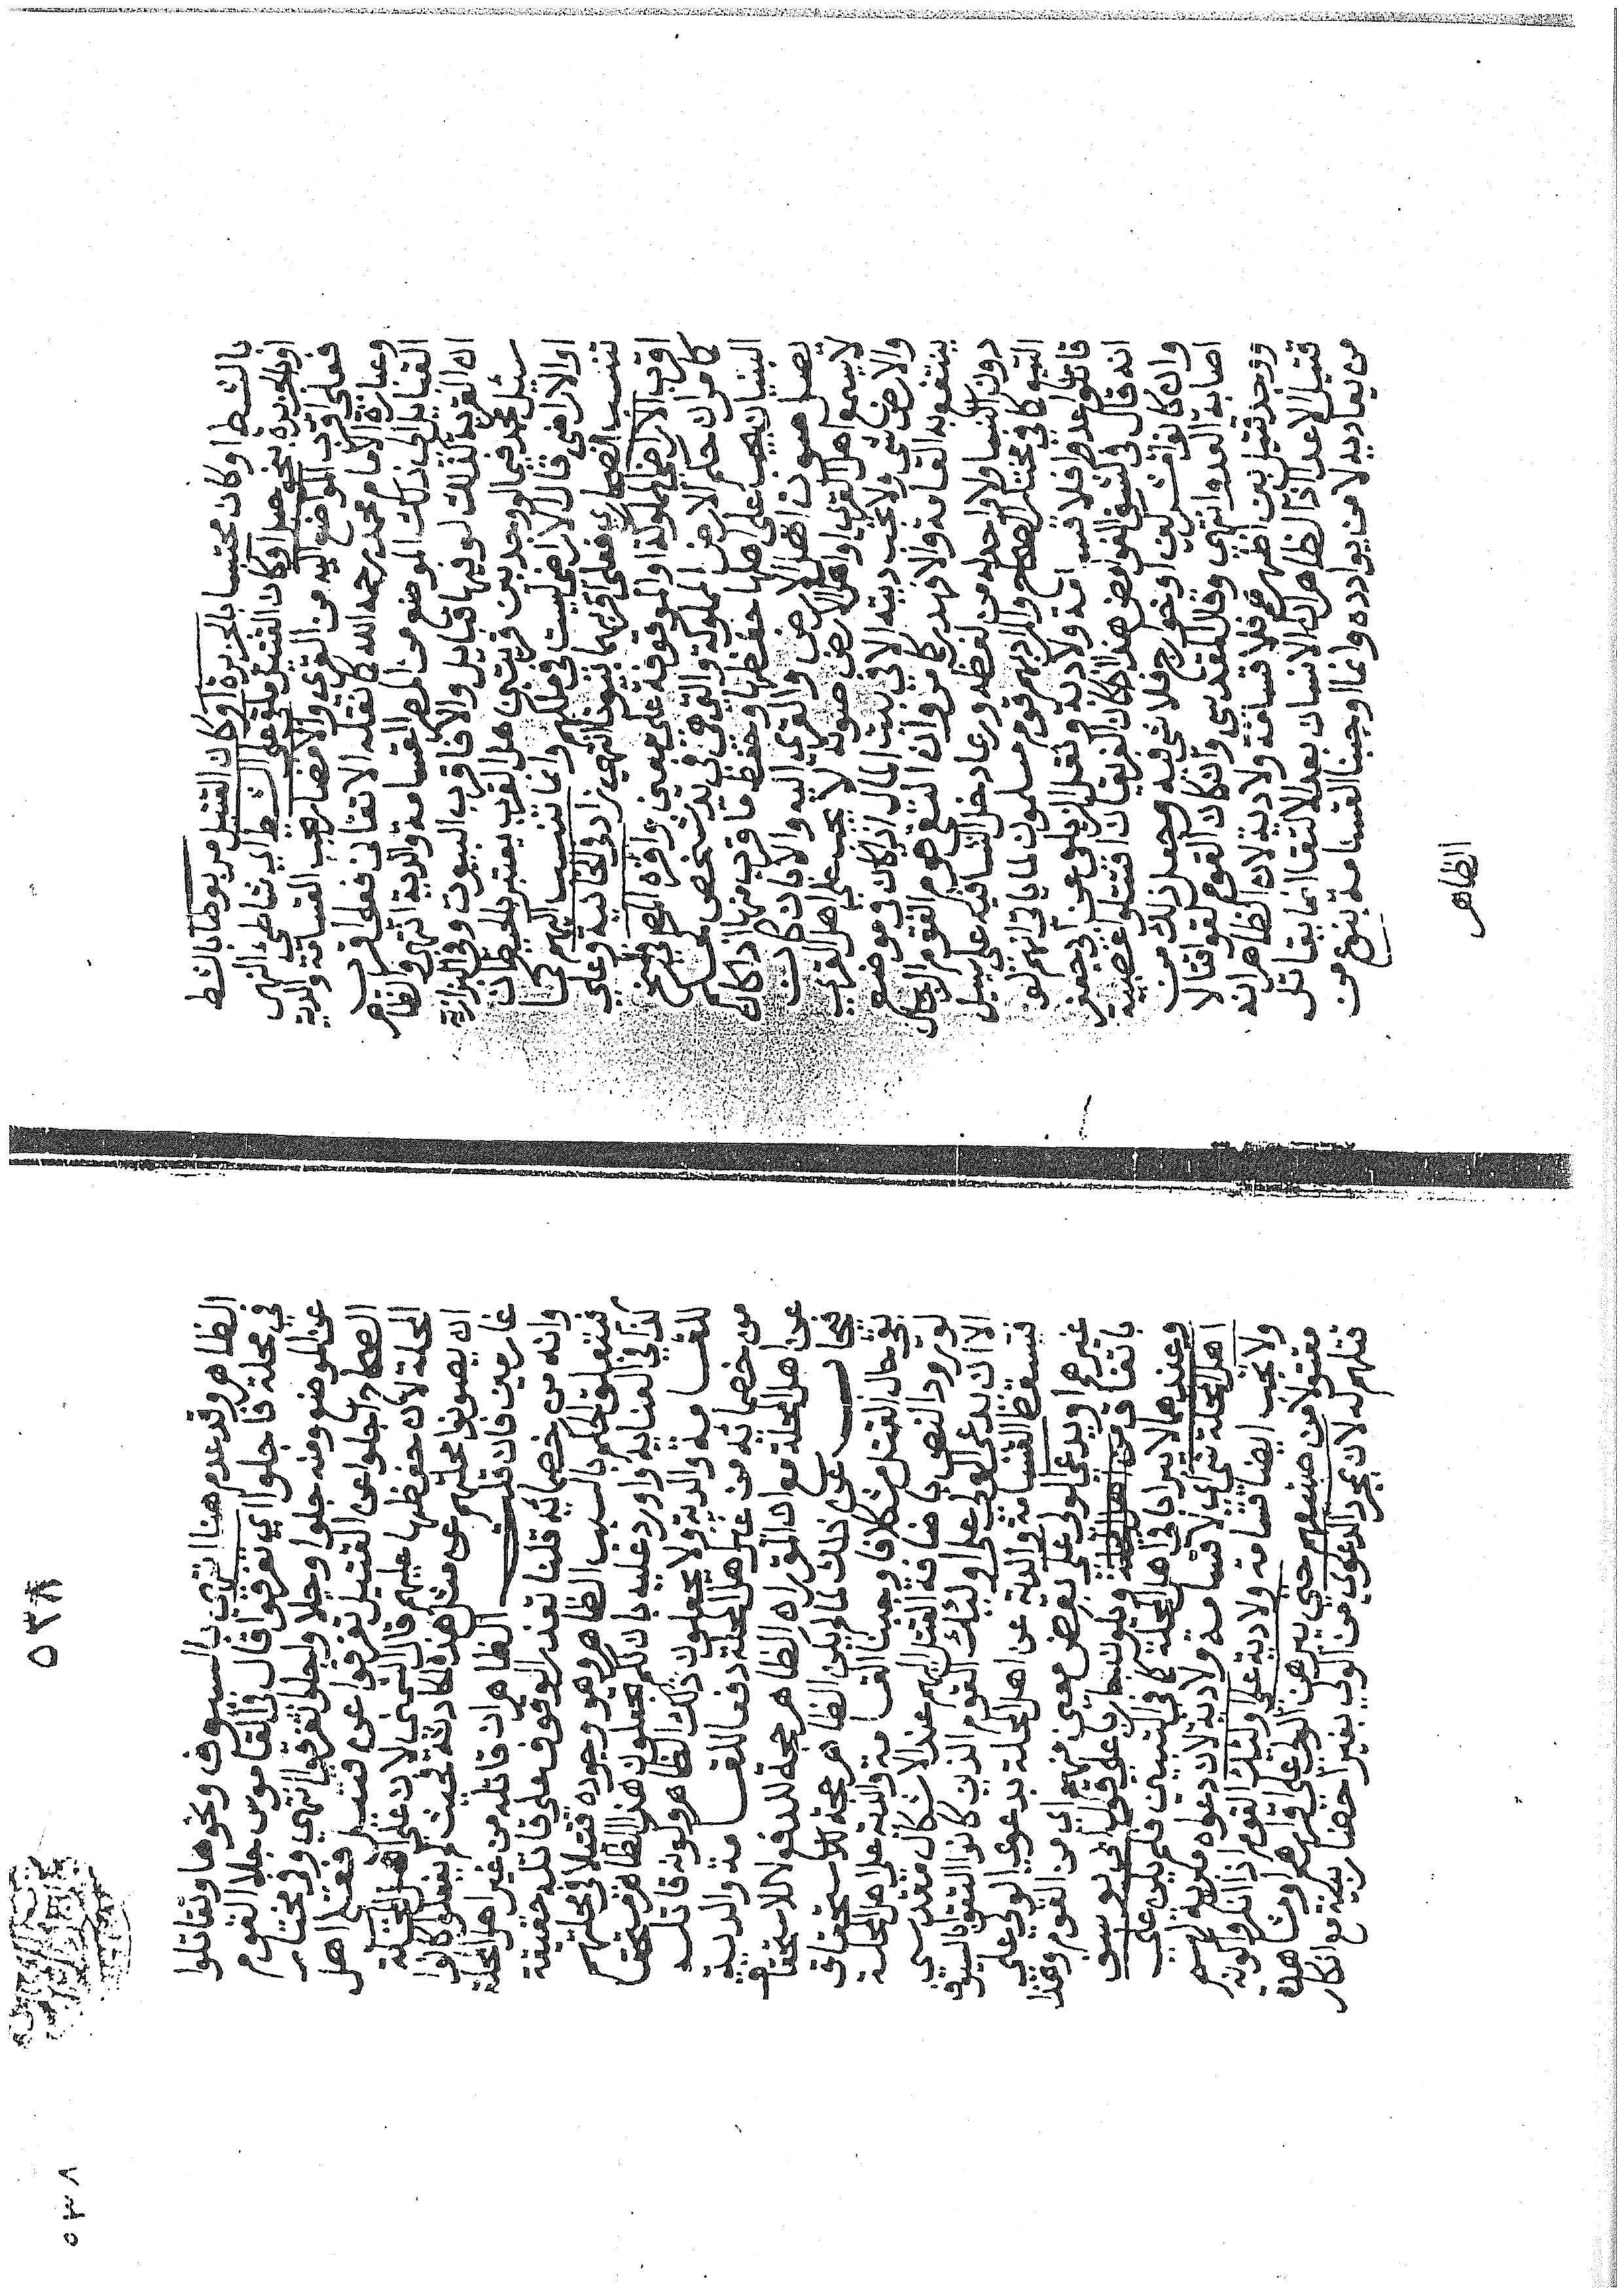 بالشط او كان محتبسا بالجزيرة او كان القتيل مربوطا بالشط
او الجزيرة بنحو هما او كان القتيل ملقى على الشط اي شاطئ النهر
فعلى اقرب المواضع اليه من القرى والامصار تجب القسامة والدية
وعبارة الامام محمد رحمه الله كما نقله الاتقاني فعلى اقرب
القبايل الى ذلك الموضع من المصر القسامة والدية انتهى والظاهر
ان القرية كذلك لو فيها قبايل والا فاقرب البيوت وفي البزازية
سئل محمد فيما لو وجد بين قريتين هل القرب يعتبر بالحيطان
او الاراضي قال الاراضي ليست في ملكهم وانما تنسب اليهم كما
تنسب الصحاري فعلى اقربهما بيوتا انتهى زاد في الخانية وعلى
اقرب الاراضي المملوكة او الموقوفة على معين واقره المص في المنح
كما مر ان حكم الارض المملوكة والقرى في يد شخص
البنيان تجب على اهلها حفظها وحفظ ما قرب منها اذا كان
يصل صوت اهل الارض والقرى اليه والا بان كانت
لا يسمع اهل القرب او اهل الارض صوته لا يجب على اهل القرى
والارض شي ولا تجب ديته الا في بيت المال ان كان في موضع
ينتفع به العامة والا فهدر كما مر وان التقى هم القوم الرجال
دون النسا ولا واحد له من لفظه وربما دخل النسا فيه على سبيل
التبع كما في مختار الصحاح والمراد بهم قوم مسلمون لما ياتي انهم لو
قاتلوا عدوا فلا قسامة ولا دية ونقل الزيلعي عن ابي جعفر
انه قال في كشف الغوامض هذا اذا كان الفريقان اقتتلوا عصبية
وان كانوا مشركين او خوارج فلا شي فيه وجعل ذلك من
اصابة العدو انتهى وقال المقدسي وان كان القوم لقوا قتالا
ووجد قتيل بين اظهرهم فلا قسامة ولا دية لان الظاهر انه
قتيل الاعدا اذ الظاهر ان الانسان بعد الالتقا انما يقاتل
من يعاديه لا من يوادده وانما اوجبنا القسامة بنوع من
الظاهر
٥٣٨
الظاهر وقد عدم هنا انتهى بالسيوف ونحوها وتقاتلوا
في محلة فاجلوا اي تفرقوا قال في القاموس جلا القوم
عن الموضع ومنه جلوا وجلاء واجلوا تفرقوا انتهى وفي مختار
الصحاح اجلوا عن القتيل تفرقوا عن قتيل فعلى اهل
المحلة لان حفظها عليهم قال الشمني لان على اهل المحلة
ان يصونوا محلتهم عن مثل هذه الحادثة فحيث لم يفعلوا كانوا
غارمين فان قلت الظاهر ان قاتله من غير اهل المحلة
وانه من خصمائه قلنا تعذر الوقوف على قاتله حقيقة
فتعلق الحكم بالسبب الظاهر وهو وجوده قتيلا في محلتهم
كذا في العناية واورد عليه بانكم تجعلون هذا الظاهر مستحقا
للقسامة والدية ولا تجعلون ذلك الظاهر وكون قاتله
من خصمائه من غير اهل المحلة دفعا للقسامة والدية
عن اهل المحلة مع ان المقرر ان الظاهر حجة للدفع لا للاستحقاق
فجاب عن ذلك لما لم يكن الظاهر حجة للاستحقاق
بقي حال القتل مشكلا فاوجبنا القسامة والدية على اهل المحلة
لورود النص باضافة القتل اليهم عند الاشكال مقدسي
الا ان يدعي الولي على اوليك القوم الذين كانوا التقوا بالسيوف
فتسقط القسامة والدية عن اهل المحلة بدعوى الولي على
غيرهم او يدعي الولي على بعض معين منهم اي من القوم وهذا
باتفاق من اهل المحلة ويكون جاريا على قول ابي يوسف
وعندهما لا يبرا باقي اهل المحلة كما في التبيين فلم يكن على
اهل المحلة شي اي لا قسامة ولا دية لان دعواه مبرية لهم
ولا تجب ايضا قسامة ولا دية على اوليك القوم اذا انكروا كونه
مقتولا من جهتهم حتى يبرهن الولي على اقرارهم او مشاهدة
قتلهم له لان مجرد الدعوى من الولي بغير احضار بينة مع انكار
٥٣٨